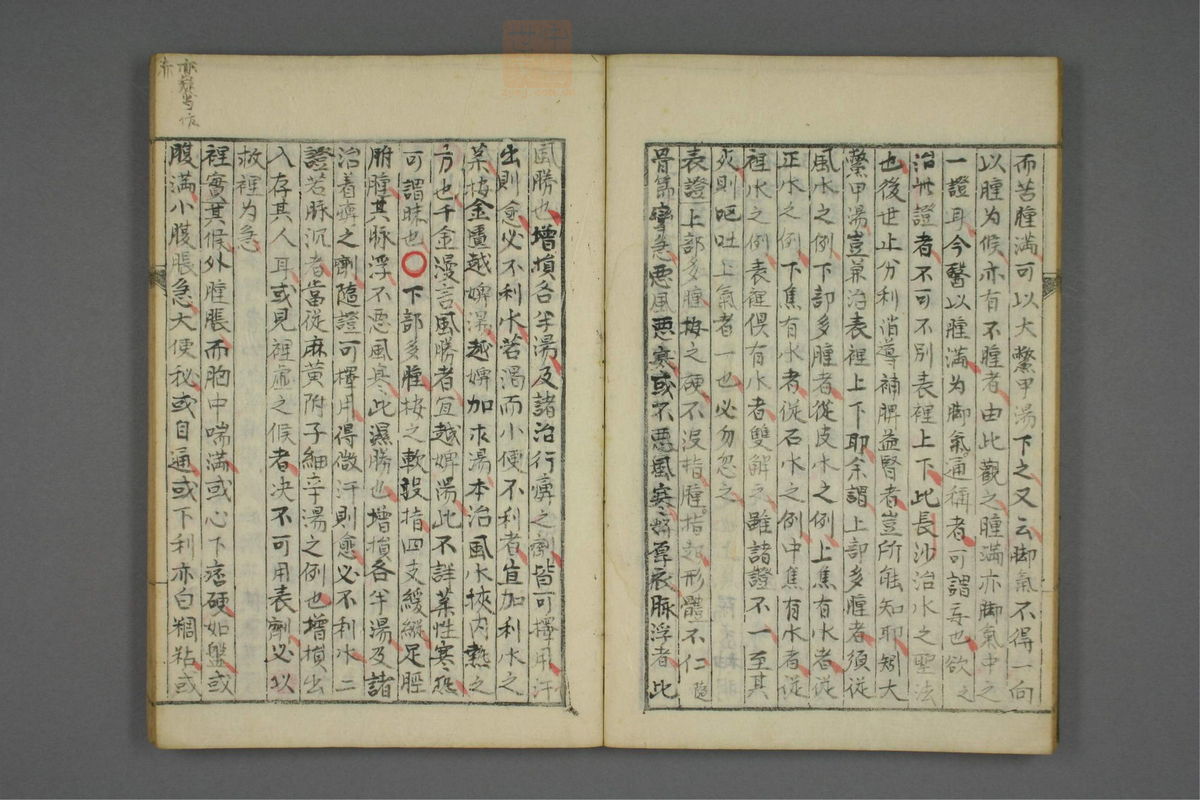 而苦腫滿可以大鱉甲湯下之又云脚氣不得一向
以腫为候亦有不腫者由此觀之腫滿亦脚氣中之
一證耳今醫以腫滿为脚氣通稱者可謂妄也欲之
治此證者不可不別表裡上下此長沙治水之聖法
也後世止分利消導補脾益腎者豈所能知耶矧大
鱉甲湯豈兼治表裡上下耶余謂上部多腫者須従
風水之例下部多腫者従皮水之例上焦有水者従
正水之例下焦有水者従石水之例中焦有水者従
裡水之例表裡俱有水者雙解之雖諸證不一至其
灸則嘔吐上氣者一也必勿忽之
表證上部多腫按之硬不没指腫指起形體不仁隨
骨節攣急悪風悪寒或不悪風寒脉浮者此
風勝也增損各半湯及諸治行痹之劑皆可擇用汗
出則愈必不利水若渴而小便不利者宜加利水之
菜按金匱越婢湯越婢加朮湯本治風水挾内熱之
方也千金漫言風勝者宜越婢湯此不詳菜性寒恐
可謂昧也○下部多腫按之軟没指四支緩縱足脛
腑腫其脉浮不悪風寒此濕勝也增損各半湯及諸
治着痹之劑隨證可擇用得微汗則愈必不利水二
證若脉沉者當従麻黄附子細辛湯之例也增損出
入存其人耳或見裡虚之候者决不可用表劑必以
救裡为急
裡實其候外腫脹而胸中喘滿或心下痞硬如盤或
腹滿小腹脹急大便秘或自通或下利亦白稠粘或
亦疑当作
赤